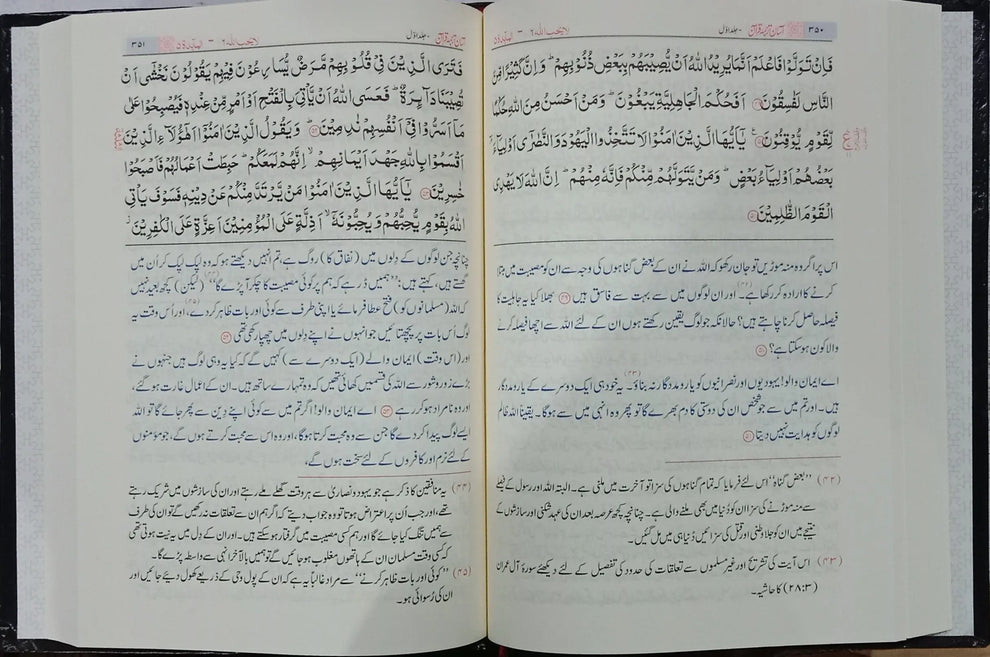 ۳۵۰ آسان ترجمۂ قرآن - جلد اوّل لا یحب اللہ ۶ - المآئدۃ ۵
فَاِنْ تَوَلَّوْا فَاعْلَمْ اَنَّمَا يُرِيْدُ اللّٰهُ اَنْ يُّصِيْبَهُمْ بِبَعْضِ ذُنُوْبِهِمْ ؕ وَ اِنَّ كَثِيْرًا مِّنَ
النَّاسِ لَفٰسِقُوْنَ ﴿۴۹﴾ اَفَحُكْمَ الْجَاهِلِيَّةِ يَبْغُوْنَ ؕ وَ مَنْ اَحْسَنُ مِنَ اللّٰهِ حُكْمًا
لِّقَوْمٍ يُّوْقِنُوْنَ ﴿۵۰﴾ يٰۤاَيُّهَا الَّذِيْنَ اٰمَنُوْا لَا تَتَّخِذُوا الْيَهُوْدَ وَ النَّصٰرٰۤى اَوْلِيَآءَ ۘ
بَعْضُهُمْ اَوْلِيَآءُ بَعْضٍ ؕ وَ مَنْ يَّتَوَلَّهُمْ مِّنْكُمْ فَاِنَّهٗ مِنْهُمْ ؕ اِنَّ اللّٰهَ لَا يَهْدِى
الْقَوْمَ الظّٰلِمِيْنَ ﴿۵۱﴾
اس پر اگر وہ منہ موڑیں تو جان رکھو کہ اللہ نے ان کے بعض گناہوں کی وجہ سے ان کو مصیبت میں مبتلا
کرنے کا ارادہ کر رکھا ہے۔ (۴۲) اور ان لوگوں میں سے بہت سے فاسق ہیں ﴿۴۹﴾ بھلا کیا یہ جاہلیت کا
فیصلہ حاصل کرنا چاہتے ہیں؟ حالانکہ جو لوگ یقین رکھتے ہوں ان کے لئے اللہ سے اچھا فیصلہ کرنے
والا کون ہوسکتا ہے؟ ﴿۵۰﴾
اے ایمان والو! یہودیوں اور نصرانیوں کو یار و مددگار نہ بناؤ۔ (۴۳) یہ خود ہی ایک دوسرے کے یار و مددگار
ہیں۔ اور تم میں سے جو شخص ان کی دوستی کا دم بھرے گا تو پھر وہ انہی میں سے ہوگا۔ یقیناً اللہ ظالم
لوگوں کو ہدایت نہیں دیتا ﴿۵۱﴾
(۴۲) ”بعض گناہ“ اس لئے فرمایا کہ تمام گناہوں کی سزا تو آخرت میں ملنی ہے۔ البتہ اللہ اور رسول کے فیصلے
سے منہ موڑنے کی سزا ان کو دُنیا میں بھی ملنے والی ہے۔ چنانچہ کچھ عرصہ بعد ان کی عہد شکنی اور سازشوں کے
نتیجے میں ان کو جلا وطنی اور قتل کی سزائیں دُنیا ہی میں مل گئیں۔
(۴۳) اس آیت کی تشریح اور غیر مسلموں سے تعلقات کی حدود کی تفصیل کے لئے دیکھئے سورۂ آل عمران
(۳:۲۸) کا حاشیہ۔
آسان ترجمۂ قرآن - جلد اوّل لا یحب اللہ ۶ - المآئدۃ ۵ ۳۵۱
فَتَرَى الَّذِيْنَ فِىْ قُلُوْبِهِمْ مَّرَضٌ يُّسَارِعُوْنَ فِيْهِمْ يَقُوْلُوْنَ نَخْشٰۤى اَنْ
تُصِيْبَنَا دَآئِرَةٌ ؕ فَعَسَى اللّٰهُ اَنْ يَّاْتِىَ بِالْفَتْحِ اَوْ اَمْرٍ مِّنْ عِنْدِهٖ فَيُصْبِحُوْا عَلٰى
مَاۤ اَسَرُّوْا فِىْۤ اَنْفُسِهِمْ نٰدِمِيْنَ ﴿۵۲﴾ وَ يَقُوْلُ الَّذِيْنَ اٰمَنُوْۤا اَهٰۤؤُلَآءِ الَّذِيْنَ
اَقْسَمُوْا بِاللّٰهِ جَهْدَ اَيْمَانِهِمْ ۙ اِنَّهُمْ لَمَعَكُمْ ؕ حَبِطَتْ اَعْمَالُهُمْ فَاَصْبَحُوْا
خٰسِرِيْنَ ﴿۵۳﴾ يٰۤاَيُّهَا الَّذِيْنَ اٰمَنُوْا مَنْ يَّرْتَدَّ مِنْكُمْ عَنْ دِيْنِهٖ فَسَوْفَ يَاْتِى
اللّٰهُ بِقَوْمٍ يُّحِبُّهُمْ وَ يُحِبُّوْنَهٗۤ ۙ اَذِلَّةٍ عَلَى الْمُؤْمِنِيْنَ اَعِزَّةٍ عَلَى الْكٰفِرِيْنَ ؗ
چنانچہ جن لوگوں کے دِلوں میں (نفاق کا) روگ ہے، تم انہیں دیکھتے ہو کہ وہ لپک لپک کر اُن میں
گھستے ہیں، کہتے ہیں: ”ہمیں ڈر ہے کہ ہم پر کوئی مصیبت کا چکر آپڑے گا“ (۴۴) (لیکن) کچھ بعید نہیں
کہ اللہ (مسلمانوں کو) فتح عطا فرمائے یا اپنی طرف سے کوئی اور بات ظاہر کردے، (۴۵) اور اُس وقت یہ
لوگ اُس بات پر پچھتائیں جو انہوں نے اپنے دلوں میں چھپا رکھی تھی ﴿۵۲﴾
اور (اس وقت) ایمان والے (ایک دوسرے سے) کہیں گے کہ کیا یہ وہی لوگ ہیں جنہوں نے
بڑے زور و شور سے اللہ کی قسمیں کھائی تھیں کہ وہ تمہارے ساتھ ہیں۔ ان کے اعمال غارت ہوگئے،
اور وہ نامراد ہوکر رہے ﴿۵۳﴾ اے ایمان والو! اگر تم میں سے کوئی اپنے دِین سے پھر جائے گا تو اللہ
ایسے لوگ پیدا کردے گا جن سے وہ محبت کرتا ہوگا، اور وہ اس سے محبت کرتے ہوں گے، جو مؤمنوں
کے لئے نرم اور کافروں کے لئے سخت ہوں گے،
(۴۴) یہ منافقین کا ذکر ہے جو یہود و نصاریٰ سے ہر وقت گھلے ملے رہتے اور ان کی سازشوں میں شریک رہتے
تھے، اور جب اُن پر اعتراض ہوتا تو وہ جواب دیتے کہ اگر ہم ان سے تعلقات نہ رکھیں گے تو ان کی طرف
سے ہمیں تنگ کیا جائے گا اور ہم کسی مصیبت میں گرفتار ہوسکتے ہیں۔ اور ان کے دِل میں یہ نیت ہوتی تھی
کہ کسی وقت مسلمان ان کے ہاتھوں مغلوب ہوجائیں گے تو ہمیں بالآخر انہی سے واسطہ پڑے گا۔
(۴۵) ”کوئی اور بات ظاہر کرنے“ سے مراد غالباً یہ ہے کہ ان کے پول وحی کے ذریعے کھول دیئے جائیں اور
ان کی رُسوائی ہو۔